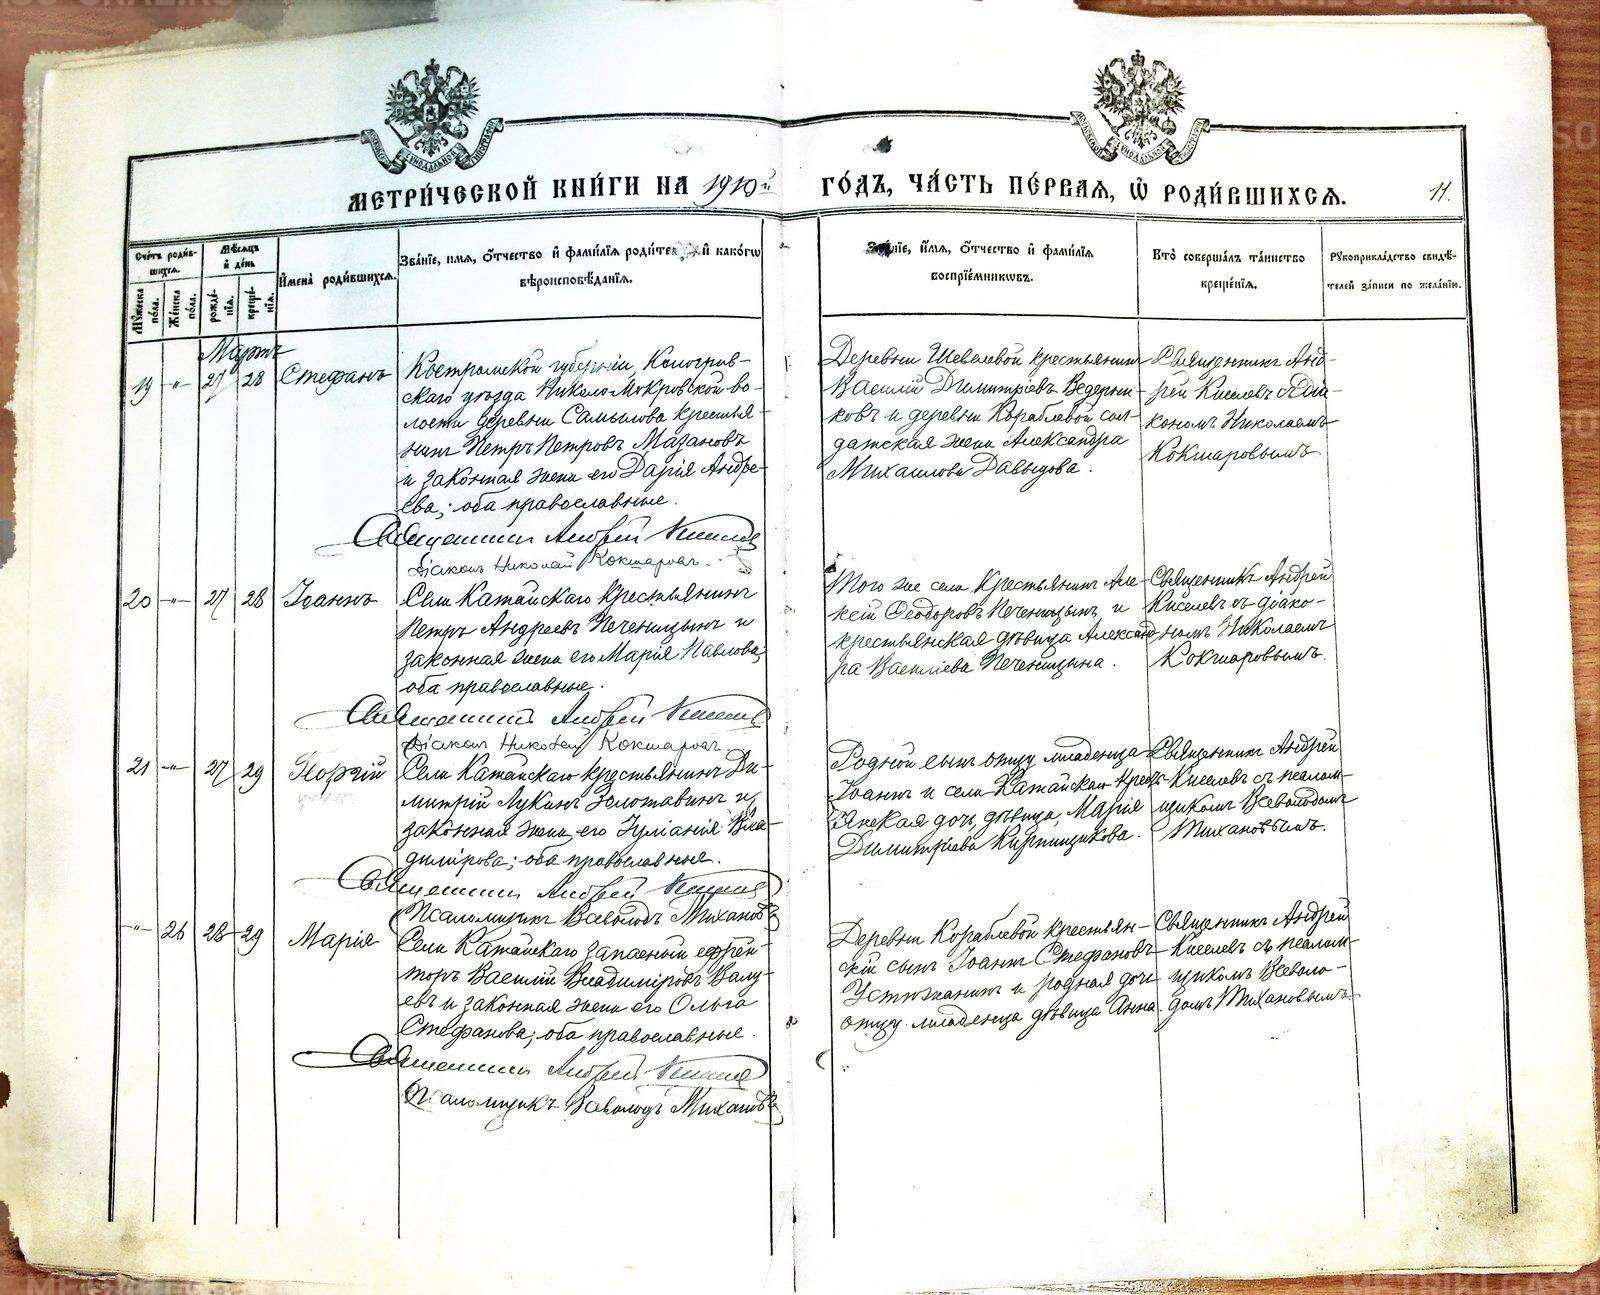 МЕТРИ́ЧЕСКОЙ КНИ́ГИ НА 1910й ГО́ДЪ, ЧА́СТЬ ПЕ́РВАЯ, Ѡ҆ РОДИ́ВШИХСЯ.
11.
Сче́тъ роди́вшихся.
Му́жеска по́ла.
Же́нска по́ла.
Мѣ́сяцъ и҆ де́нь
рожде́нїя.
креще́нїя.
И҆мена̀ роди́вшихся.
Зва́нїе, и҆мя, ѻ҆́тчество и҆ фами́лїя роди́те й како́гѡ
вѣроисповѣ́данїя.
Зва́нїе, и҆́мя, ѻ҆́тчество и҆ фами́лїя
воспрїе́мниковъ.
Кто̀ соверша́лъ та́инство
креще́нїя.
Рꙋкоприкла́дство свидѣ́-
телей за́писи по жела́нїю.
Мартъ
19 -"- 27 28 Стефанъ
Костромской губерніи, Кологрив-
скаго уѣзда Николо-Мокровской во-
лости деревни Самылова крестья-
нинъ Петръ Петровъ Мазановъ
и законная жена его Дарія Андре-
ева; оба православные.
Священникъ Андрей Киселевъ
Діаконъ Николай Кокшаровъ.
Деревни Шевелевой крестьянинъ
Василій Димитріевъ Ведерни-
ковъ и деревни Кораблевой сол-
датская жена Александра
Михаилова Давыдова.
Священникъ Анд-
рей Киселевъ съ діа-
кономъ Николаемъ
Кокшаровымъ
20 -"- 27 28 Іоаннъ
Села Катайскаго крестьянинъ
Петръ Андреевъ Печеницынъ и
законная жена его Марія Павлова,
оба православные.
Священникъ Андрей Киселевъ
Діаконъ Николай Кокшаровъ
Того же села крестьянинъ Але-
ксій Феодоровъ Печеницынъ и
крестьянская дѣвица Александ-
ра Василіева Печеницына.
Священникъ Андрей
Киселевъ съ діако-
номъ Николаемъ
Кокшаровымъ.
21 -"- 27 29 Георгій
Села Катайскаго крестьянинъ Ди-
митрій Лукинъ Золотавинъ и
законная жена его Іуліанія Вла-
димірова; оба православные.
Священникъ Андрей Киселевъ
Псаломщикъ Всеволодъ Тихановъ
Родной сынъ отцу младенца
Іоаннъ и села Катайскаго кресть-
янская дочь, дѣвица, Марія
Димитріева Кирпищикова.
Священникъ Андрей
Киселевъ съ псалом-
щикомъ Всеволодомъ
Тихановымъ.
-"- 26 28 29 Марія
Села Катайскаго запасный ефрей-
торъ Василій Владиміровъ Валу-
евъ и законная жена его Ольга
Стефанова; оба православные.
Священникъ Андрей Киселевъ
Псаломщикъ Всеволодъ Тихановъ
Деревни Кораблевой крестьян-
скій сынъ Іоаннъ Стефановъ
Устюжанинъ и родная дочь
отцу младенца дѣвица Анна.
Священникъ Андрей
Киселевъ съ псалом-
щикомъ Всеволо-
домъ Тихановымъ.